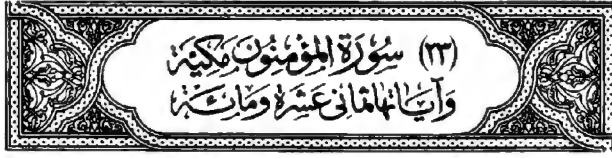 (٢٣) سُورَةُ المُؤْمِنُونَ مَكِيَّةٌ
وَآيَاتُهَا ثَمَانِي عَشْرَةَ وَمِائَةٌ